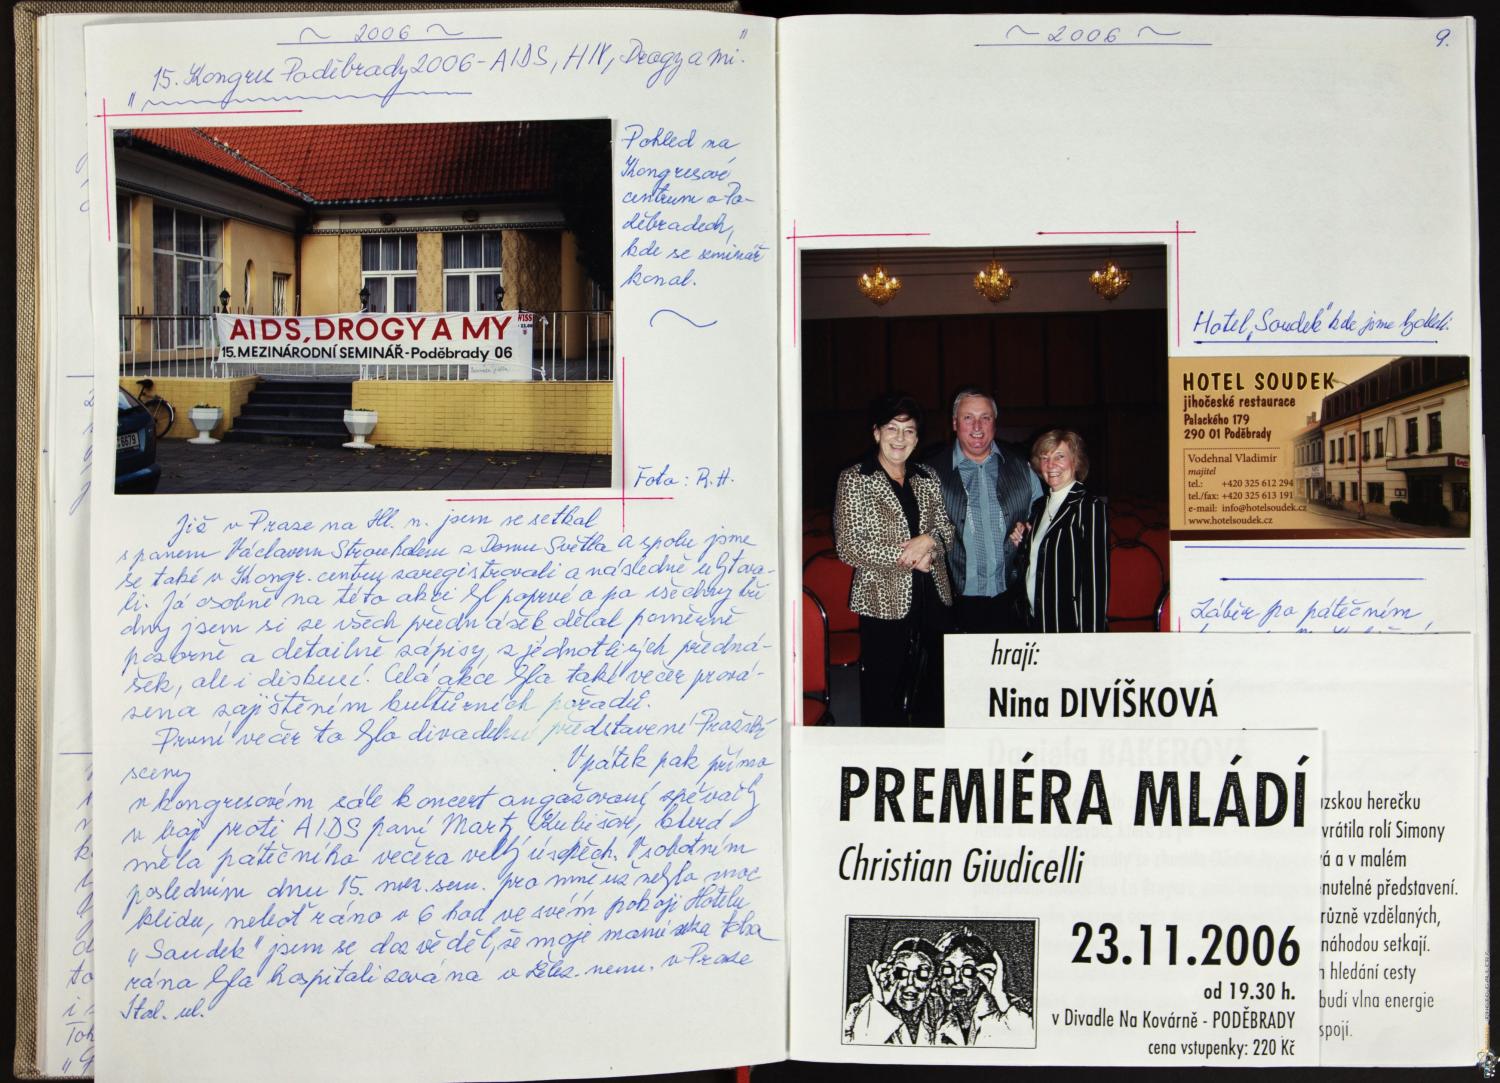 ~ 2006 ~
"15. Kongres Poděbrady 2006 - AIDS, HIV, Drogy a mi."
AIDS, DROGY A MY
15. MEZINÁRODNÍ SEMINÁŘ - Poděbrady 06
Pohled na
Kongresové
centrum v Po-
děbradech,
kde se seminář
konal.
Foto: R.H.
Již v Praze na Hl. n. jsem se setkal
s panem Václavem Strouhalem z Domu Světla a spolu jsme
se také v Kongr. centru zaregistrovali a následně ubytova-
li. Já osobně na této akci byl poprvé a po všechny tři
dny jsem si ze všech přednášek dělal poměrně
pozorně a detailně zápisy, z jednotlivých předná-
šek, ale i diskusí. Celá akce byla také večer prová-
zena zajištěním kulturních pořadů.
První večer to bylo divadelní představení Pražské
sceny
V pátek pak přímo
v kongresovém sále koncert angažované zpěvačky
v boji proti AIDS paní Marty Kubišové, která
měla pátečního večera velký úspěch. V sobotním
posledním dnu 15. mez. sem. pro mně už nebylo moc
klidu, neboť ráno v 6 hod ve svém pokoji Hotelu
"Soudek" jsem se dozvěděl, že moje maminka toho
rána byla hospitalizována v želez. nem. v Praze
Ital. ul.
~ 2006 ~
9.
Hotel "Soudek" kde jsme bydleli.
HOTEL SOUDEK
jihočeské restaurace
Palackého 179
290 01 Poděbrady
Vodehnal Vladimír
majitel
tel.: +420 325 612 294
tel./fax: +420 325 613 191
e-mail: info@hotelsoudek.cz
www.hotelsoudek.cz
Záběr po pátečním
hrají:
Nina DIVÍŠKOVÁ
Daniela BAKEROVÁ
PREMIÉRA MLÁDÍ
Christian Giudicelli
23.11.2006
od 19.30 h.
v Divadle Na Kovárně - PODĚBRADY
cena vstupenky: 220 Kč
uzskou herečku
vrátila rolí Simony
vá a v malém
nutelné představení.
různě vzdělaných,
náhodou setkají.
h hledání cesty
budí vlna energie
spojí.